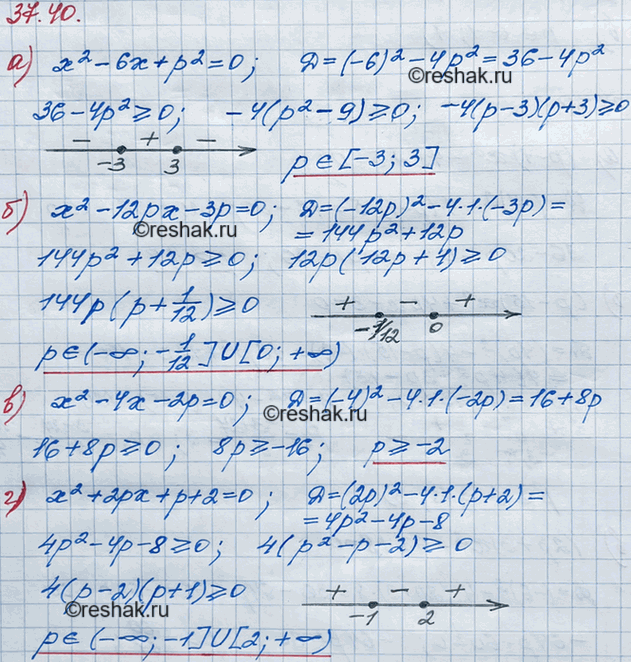 37.40.
а) x² - 6x + p² = 0; Д = (-6)² - 4p² = 36 - 4p²
©reshak.ru
36 - 4p² ≥ 0; -4(p² - 9) ≥ 0; -4(p-3)(p+3) ≥ 0
- + -
-3 3 p ∈ [-3; 3]
б) x² - 12px - 3p = 0; Д = (-12p)² - 4·1·(-3p) =
©reshak.ru = 144p² + 12p
144p² + 12p ≥ 0; 12p(12p + 1) ≥ 0
144p(p + 1/12) ≥ 0 + - +
-1/12 0
p ∈ (-∞; -1/12] U [0; +∞)
в) x² - 4x - 2p = 0; Д = (-4)² - 4·1·(-2p) = 16 + 8p
©reshak.ru
16 + 8p ≥ 0; 8p ≥ -16; p ≥ -2
г) x² + 2px + p + 2 = 0; Д = (2p)² - 4·1·(p+2) =
= 4p² - 4p - 8
4p² - 4p - 8 ≥ 0; 4(p² - p - 2) ≥ 0
4(p-2)(p+1) ≥ 0 + - +
©reshak.ru -1 2
p ∈ (-∞; -1] U [2; +∞)